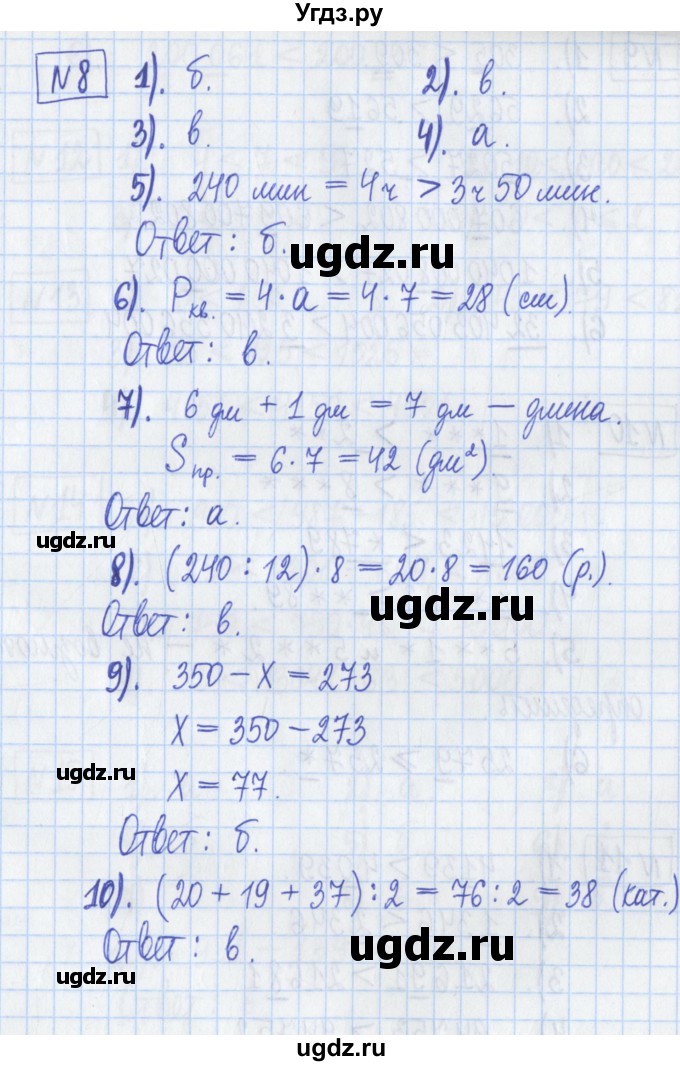 Угдз.ру
№8 1). б. 2). в.
3). в. 4). а.
5). 240 мин = 4ч > 3ч 50 мин.
Ответ: б.
ugdz.ru
6). Pкв. = 4·a = 4·7 = 28 (см).
Ответ: в.
7). 6 дм + 1 дм = 7 дм – длина.
Sпр. = 6·7 = 42 (дм²).
Ответ: а.
ugdz.ru
8). (240 : 12)·8 = 20·8 = 160 (р.).
ugdz.ru
Ответ: в.
9). 350 – X = 273
X = 350 – 273
ugdz.ru
X = 77.
Ответ: б.
10). (20 + 19 + 37) : 2 = 76 : 2 = 38 (кат.)
Ответ: в.
ugdz.ru
ugdz.ru
ugdz.ru